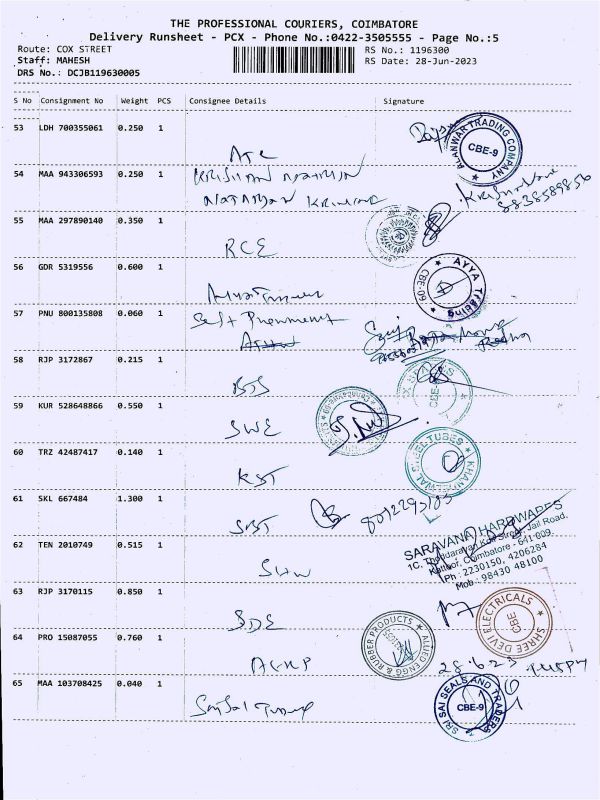 THE PROFESSIONAL COURIERS, COIMBATORE
Delivery Runsheet - PCX - Phone No.:0422-3505555 - Page No.:5
Route: COX STREET
RS No.: 1196300
Staff: MAHESH
RS Date: 28-Jun-2023
DRS No.: DCJB119630005
S No Consignment No Weight PCS Consignee Details Signature
53 LDH 700355061 0.250 1
ALANWAR TRADING COMPANY CBE-9
ATC
54 MAA 943306593 0.250 1
KRISHNAN NATARAJAN
NATARAJAN KRISHNAN
8838589856
55 MAA 297890140 0.350 1
RCE
56 GDR 5319556 0.600 1
AYYA Traders CBE-09
57 PNU 800135808 0.060 1
58 RJP 3172867 0.215 1
BJS
59 KUR 528648866 0.550 1
SWE
60 TRZ 42487417 0.140 1
KST
KHANDELWAL STEEL TUBES
61 SKL 667484 1.300 1
SBT
62 TEN 2010749 0.515 1
SHW
SARAVANA HARDWARES
Kattoor, Coimbatore - 641 009.
Ph : 2230150, 4206284
Mob : 98430 48100
63 RJP 3170115 0.850 1
SDE
SHREE DEVI ELECTRICALS CBE
64 PRO 15087055 0.760 1
ALLIED ENGG & RUBBER PRODUCTS
28.6.23
65 MAA 103708425 0.040 1
SRI SAI SEALS AND TRADERS CBE-9